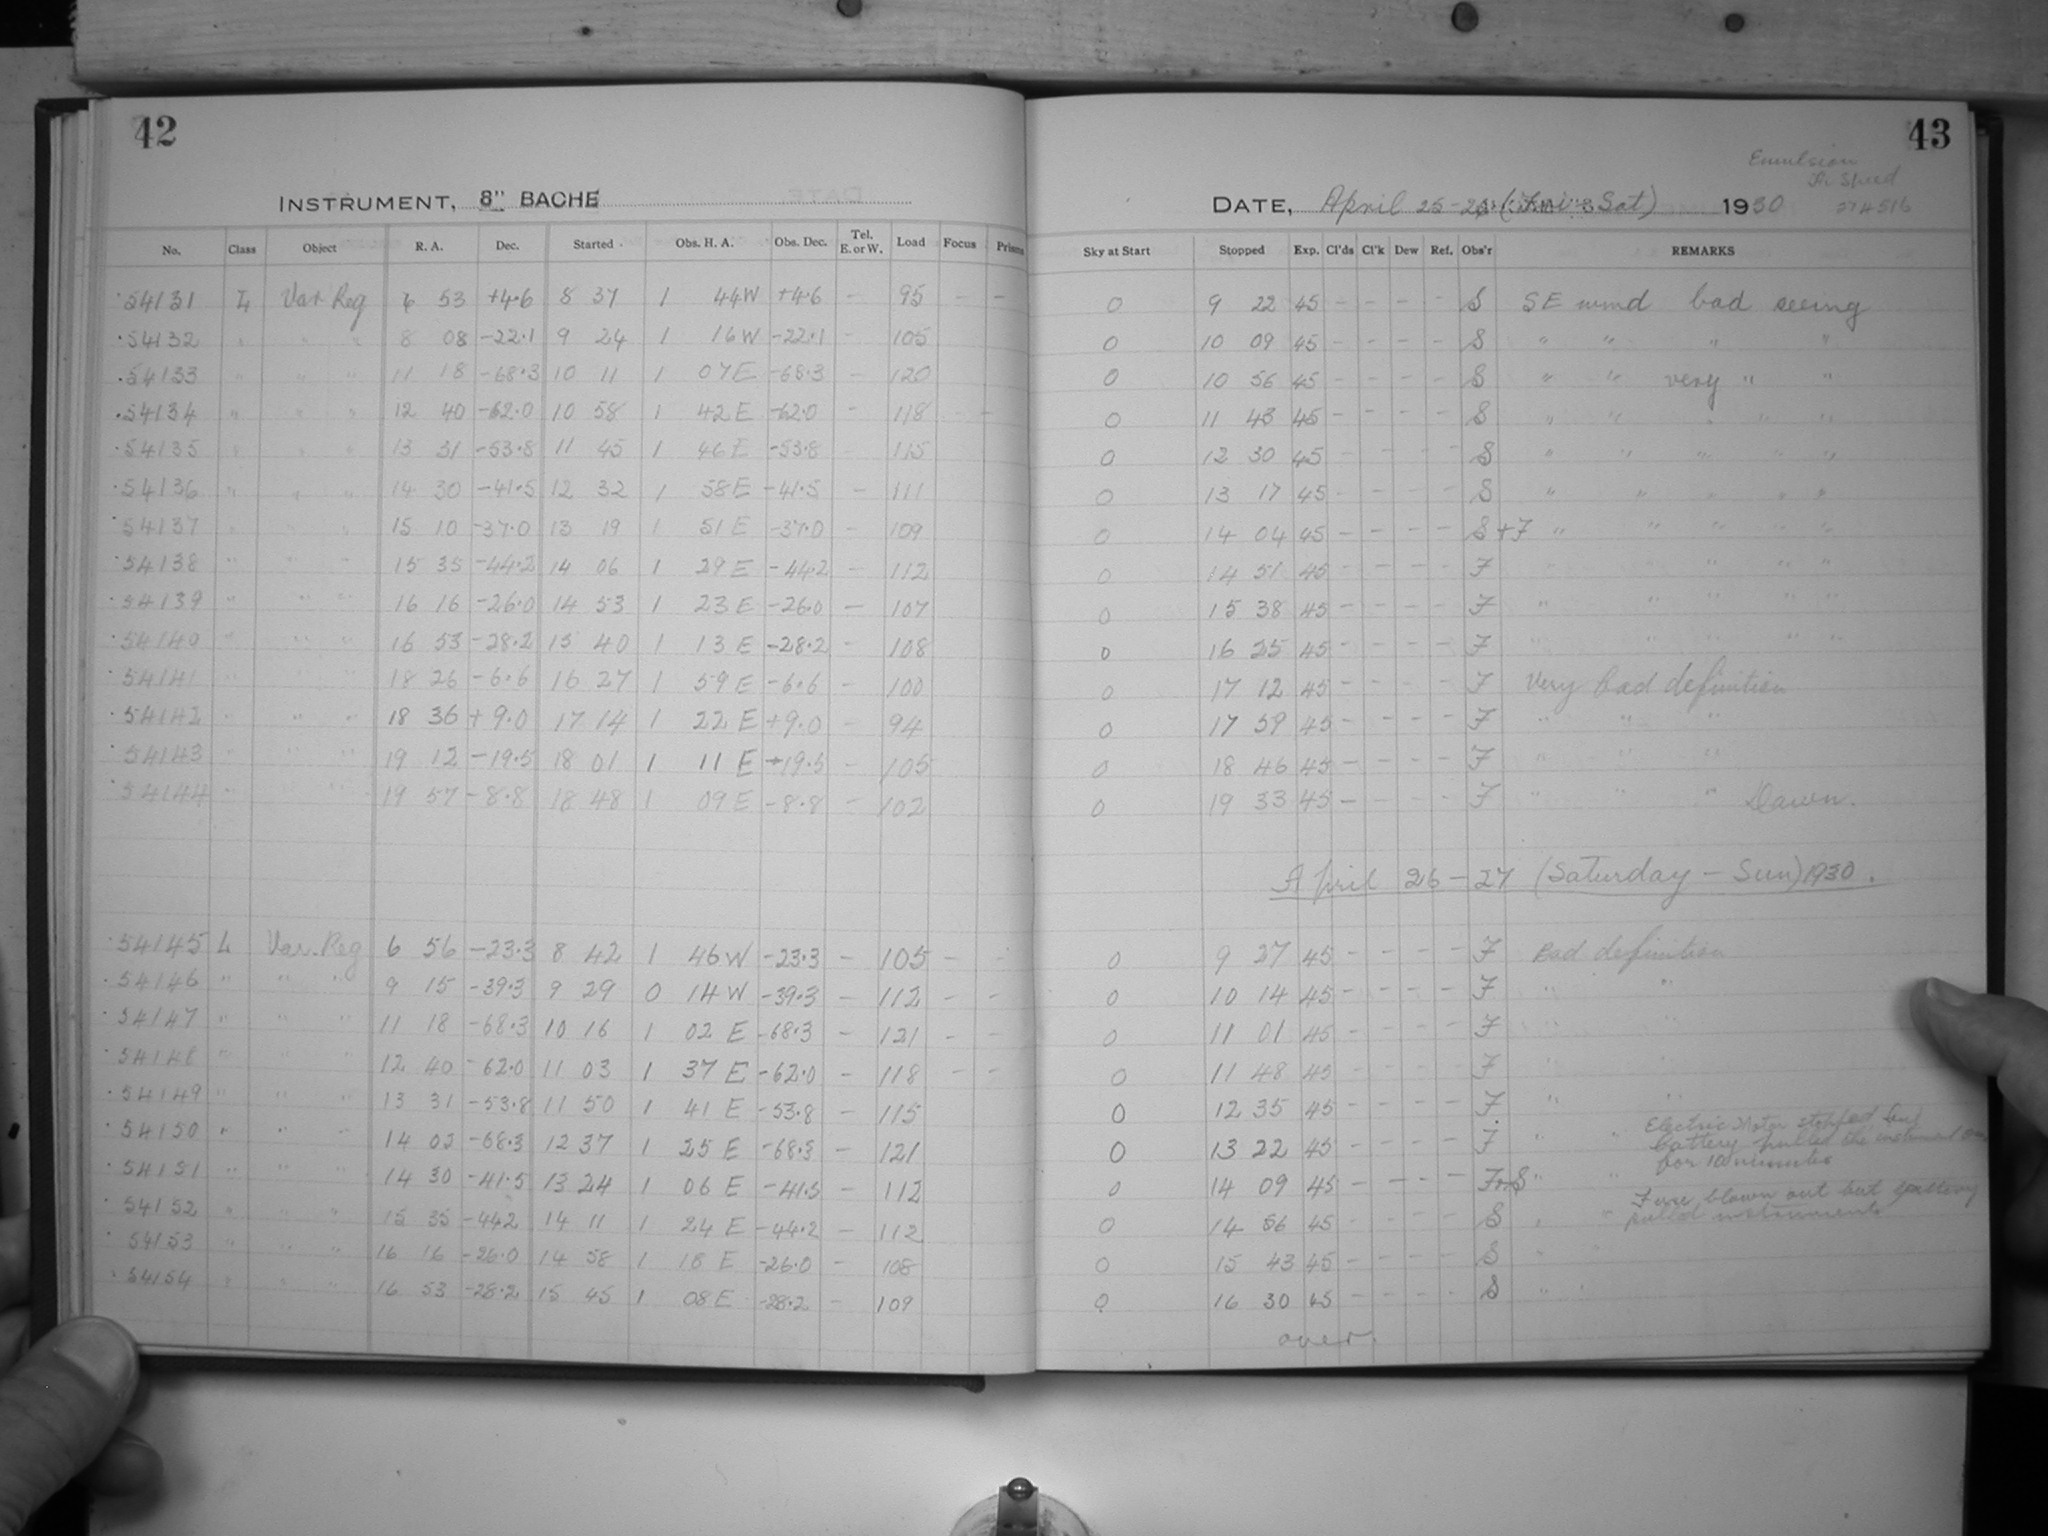 42
INSTRUMENT, 8" BACHE
No. Class Object R. A. Dec. Started Obs. H. A. Obs. Dec. Tel. E. or W. Load Focus Prisms
54131 L Var Reg 6 53 +4.6 8 37 1 44 W +4.6 - 95 - -
54132 " " " 8 08 -22.1 9 24 1 16 W -22.1 - 105
54133 " " " 11 18 -68.3 10 11 1 07 E -68.3 - 120
54134 " " " 12 40 -62.0 10 58 1 42 E -62.0 - 118 - -
54135 " " " 13 31 -53.8 11 45 1 46 E -53.8 - 115
54136 " " " 14 30 -41.5 12 32 1 58 E -41.5 - 111
54137 " " " 15 10 -37.0 13 19 1 51 E -37.0 - 109
54138 " " " 15 35 -44.2 14 06 1 29 E -44.2 - 112
54139 " " " 16 16 -26.0 14 53 1 23 E -26.0 - 107
54140 " " " 16 53 -28.2 15 40 1 13 E -28.2 - 108
54141 " " " 18 26 -6.6 16 27 1 59 E -6.6 - 100
54142 " " " 18 36 +9.0 17 14 1 22 E +9.0 - 94
54143 " " " 19 12 -19.5 18 01 1 11 E -19.5 - 105
54144 " " " 19 57 -8.8 18 48 1 09 E -8.8 - 102
54145 L Var. Reg 6 56 -23.3 8 42 1 46 W -23.3 - 105 - -
54146 " " " 9 15 -39.3 9 29 0 14 W -39.3 - 112 - -
54147 " " " 11 18 -68.3 10 16 1 02 E -68.3 - 121 - -
54148 " " " 12 40 -62.0 11 03 1 37 E -62.0 - 118 - -
54149 " " " 13 31 -53.8 11 50 1 41 E -53.8 - 115
54150 " " " 14 02 -68.3 12 37 1 25 E -68.3 - 121
54151 " " " 14 30 -41.5 13 24 1 06 E -41.5 - 112
54152 " " " 15 35 -442 14 11 1 24 E -44.2 - 112
54153 " " " 16 16 -26.0 14 58 1 18 E -26.0 - 108
54154 " " " 16 53 -28.2 15 45 1 08 E -28.2 - 109
43
Emulsion
Speed
DATE, April 25-26 (Fri - Sat) 1930
Sky at Start Stopped Exp. Cl'ds Cl'k Dew Ref. Obs'r REMARKS
0 9 22 45 - - - - S SE wind bad seeing
0 10 09 45 - - - - S " " " "
0 10 56 45 - - - - S " " very " "
0 11 43 45 - - - - S " " " " "
0 12 30 45 - - - - S " " " " "
0 13 17 45 - - - - S " " " " "
0 14 04 45 - - - - S+F " " " " "
0 14 51 45 - - - - F " " " " "
0 15 38 45 - - - - F " " " " "
0 16 25 45 - - - - F " " " " "
0 17 12 45 - - - - F Very Bad definition
0 17 59 45 - - - - F " " "
0 18 46 45 - - - - F " " "
0 19 33 45 - - - - F " " " Dawn.
April 26-27 (Saturday - Sun) 1930.
0 9 27 45 - - - - F Bad definition
0 10 14 45 - - - - F " "
0 11 01 45 - - - - F " "
0 11 48 45 - - - - F " "
0 12 35 45 - - - - F " "
0 13 22 45 - - - - F " " Electric Motor stopped but
battery pulled the instrument
for 10 minutes
0 14 09 45 - - - - F+S " "
0 14 56 45 - - - - S " " Fuse blown out but battery
pulled instrument
0 15 43 45 - - - - S "
0 16 30 45 - - - - S " "
over